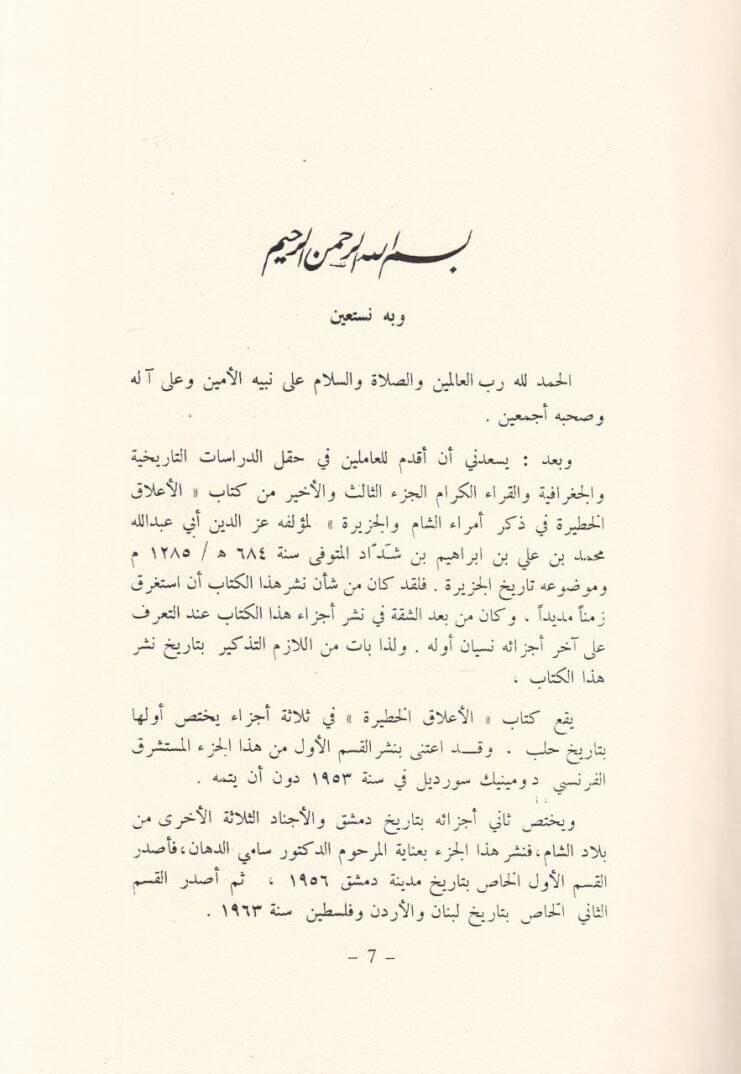 بسم الله الرحمن الرحيم
وبه نستعين
الحمد لله رب العالمين والصلاة والسلام على نبيه الأمين وعلى آله
وصحبه أجمعين .
وبعد : يسعدني أن أقدم للعاملين في حقل الدراسات التاريخية
والجغرافية والقراء الكرام الجزء الثالث والأخير من كتاب « الأعلاق
الخطيرة في ذكر أمراء الشام والجزيرة » لمؤلفه عز الدين أبي عبدالله
محمد بن علي بن ابراهيم بن شدّاد المتوفى سنة ٦٨٤ ه / ١٢٨٥ م
وموضوعه تاريخ الجزيرة . فلقد كان من شأن نشر هذا الكتاب أن استغرق
زمناً مديداً ، وكان من بعد الشقة في نشر أجزاء هذا الكتاب عند التعرف
على آخر أجزائه نسيان أوله . ولذا بات من اللازم التذكير بتاريخ نشر
هذا الكتاب ،
يقع كتاب « الأعلاق الخطيرة » في ثلاثة أجزاء يختص أولها
بتاريخ حلب . وقـــد اعتنى بنشر القسم الأول من هذا الجزء المستشرق
الفرنسي دومينيك سورديل في سنة ١٩٥٣ دون أن يتمه .
ويختص ثاني أجزائه بتاريخ دمشق والأجناد الثلاثة الأخرى من
بلاد الشام، فنشر هذا الجزء بعناية المرحوم الدكتور سامي الدهان، فأصدر
القسم الأول الخاص بتاريخ مدينة دمشق ١٩٥٦ ، ثم أصدر القسم
الثاني الخاص بتاريخ لبنان والأردن وفلسطين سنة ١٩٦٣ .
– 7 –